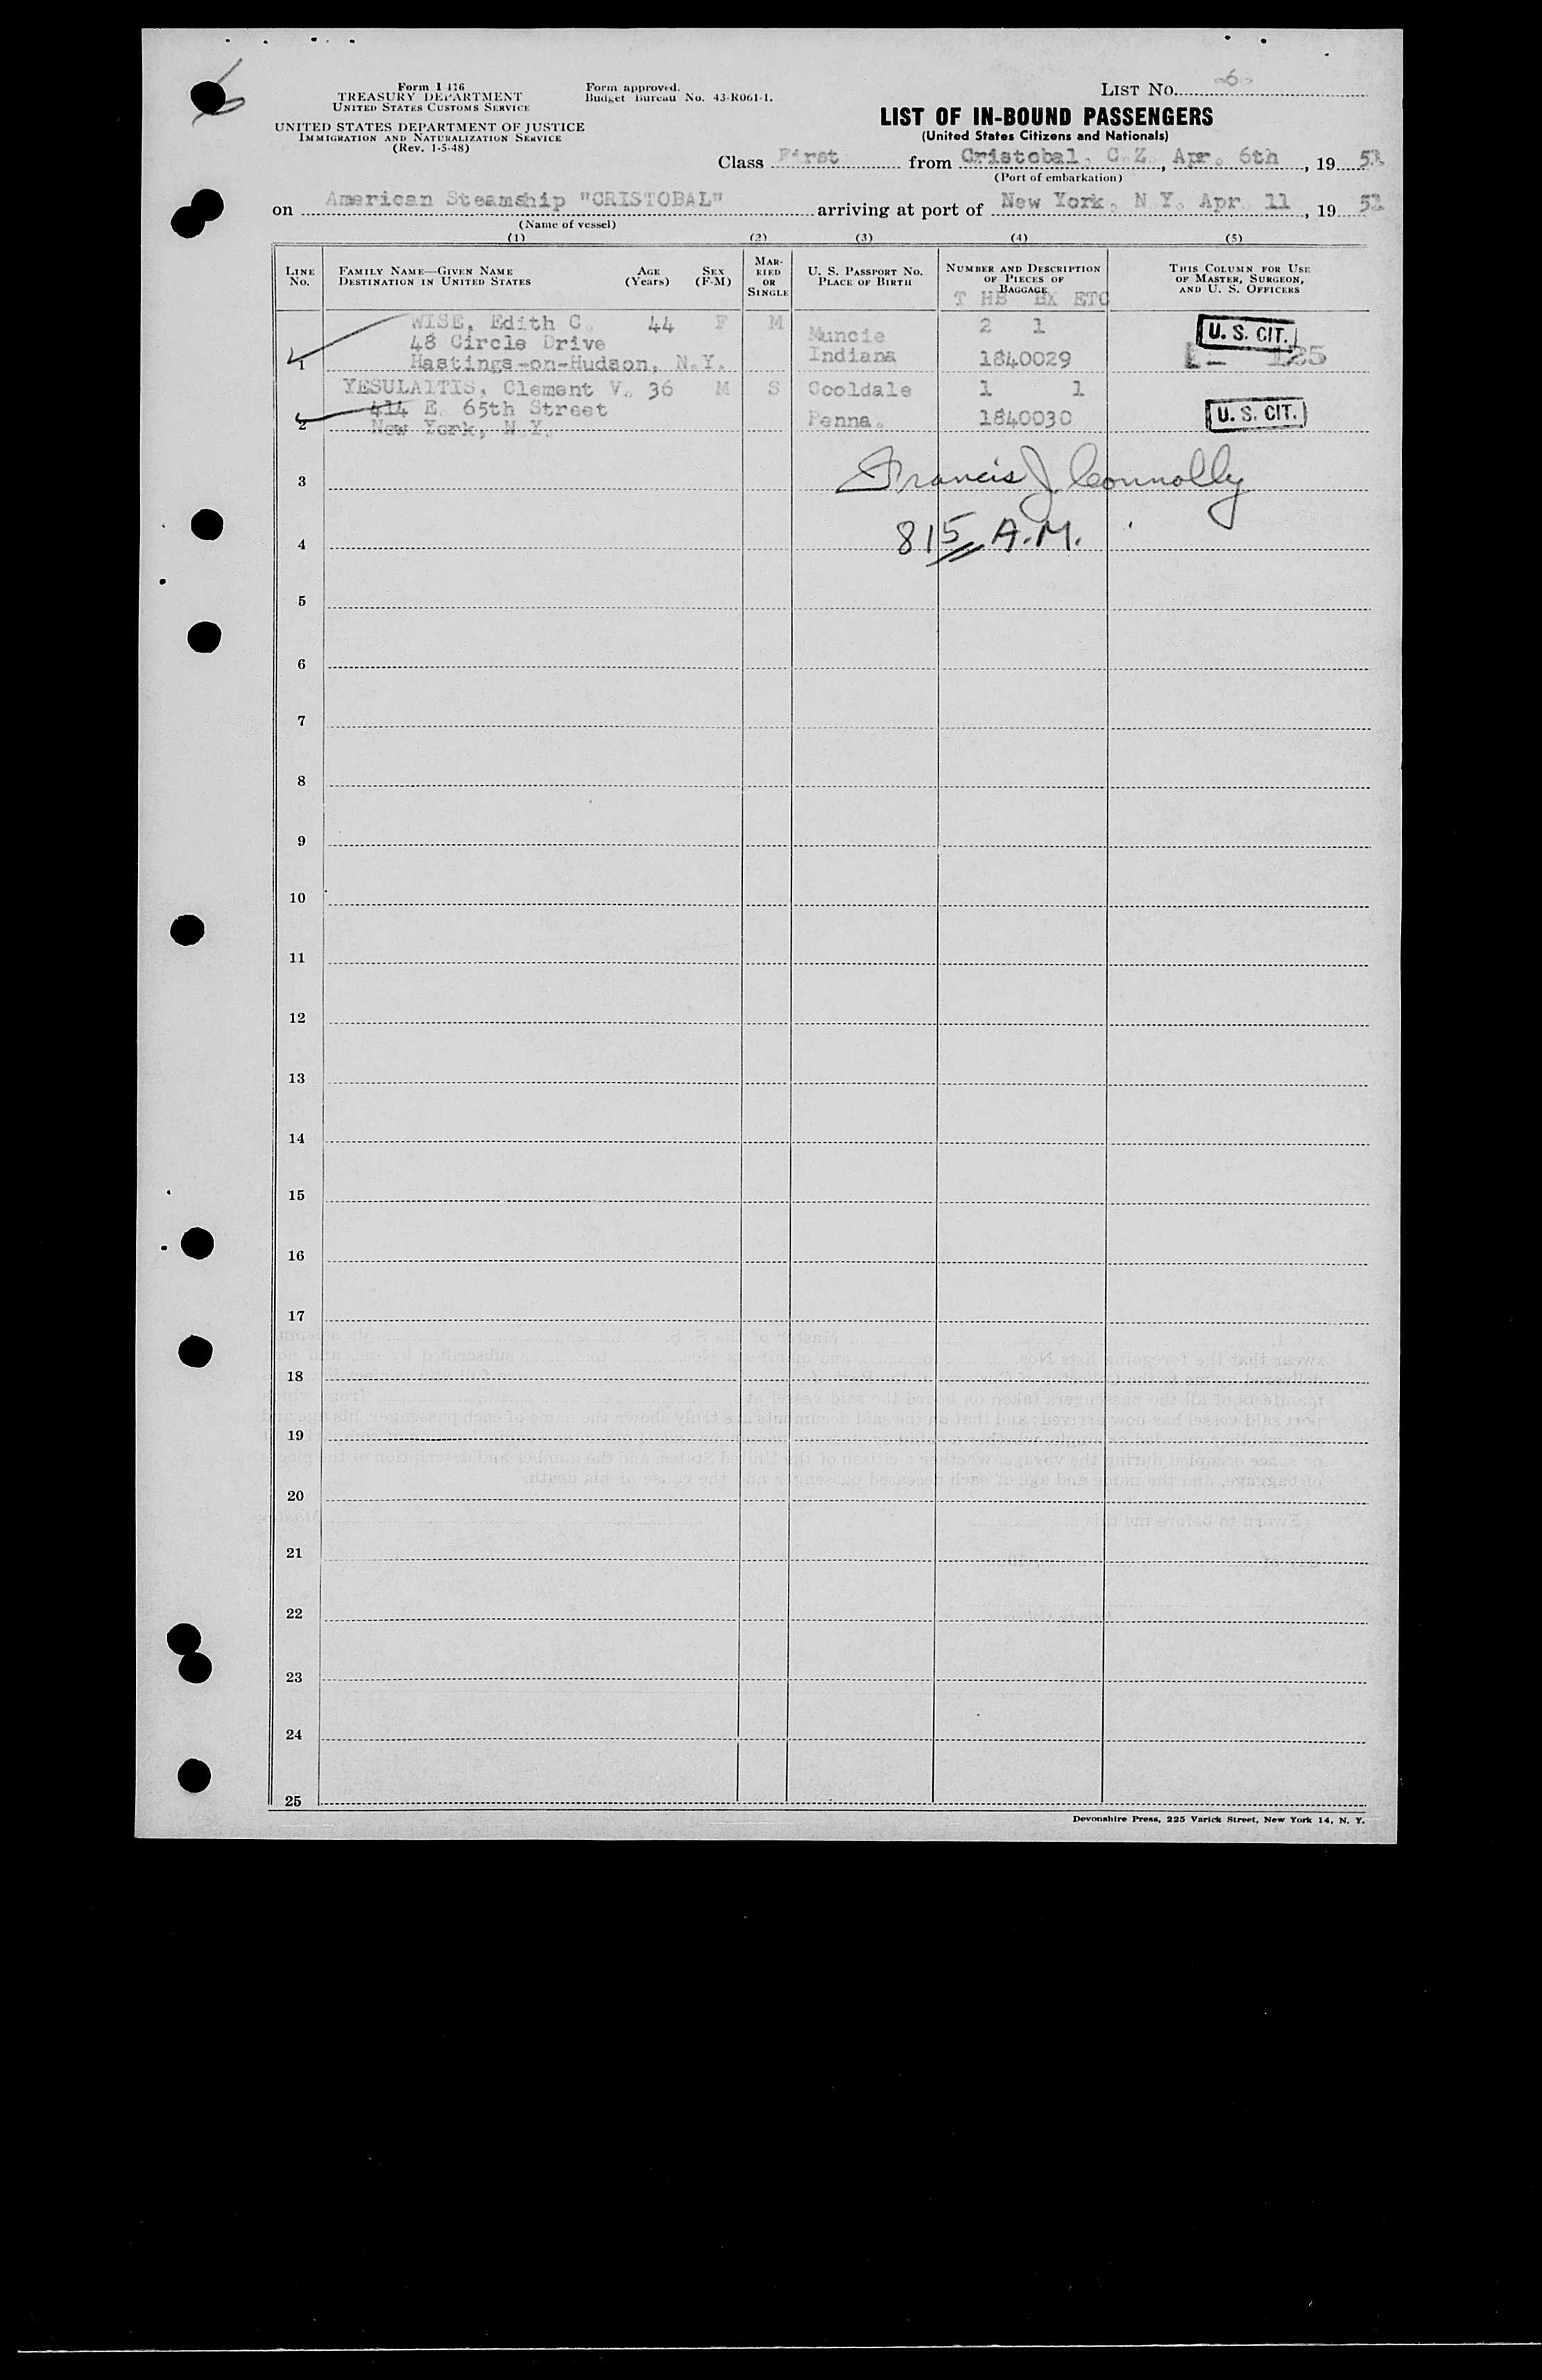 6
Form I 416
TREASURY DEPARTMENT
UNITED STATES CUSTOMS SERVICE
UNITED STATES DEPARTMENT OF JUSTICE
IMMIGRATION AND NATURALIZATION SERVICE
(Rev. 1-5-48)
Form approved.
Budget Bureau No. 43-R061-1.
LIST NO. -6-
LIST OF IN-BOUND PASSENGERS
(United States Citizens and Nationals)
Class First from Cristobal, C.Z., Apr. 6th, 19 51
(Port of embarkation)
on American Steamship "CRISTOBAL" arriving at port of New York, N.Y. Apr 11, 19 51
(Name of vessel)
(1) (2) (3) (4) (5)
LINE NO.
FAMILY NAME—GIVEN NAME
DESTINATION IN UNITED STATES
AGE (Years)
SEX (F-M)
MARRIED OR SINGLE
U. S. PASSPORT NO.
PLACE OF BIRTH
NUMBER AND DESCRIPTION
OF PIECES OF
BAGGAGE
T HB BX ETC
THIS COLUMN FOR USE
OF MASTER, SURGEON,
AND U. S. OFFICERS
WISE, Edith C. 44 F M Muncie 2 1 U. S. CIT.
48 Circle Drive
1 Hastings-on-Hudson, N.Y. Indiana 1840029
YESULAITIS, Clement V. 36 M S Cooldale 1 1
414 E. 65th Street Penna. 1840030 U. S. CIT.
2 New York, N.Y.
3 Francis J Connolly
4 815 A.M.
5
6
7
8
9
10
11
12
13
14
15
16
17
18
19
20
21
22
23
24
25
Devonshire Press, 225 Varick Street, New York 14, N. Y.